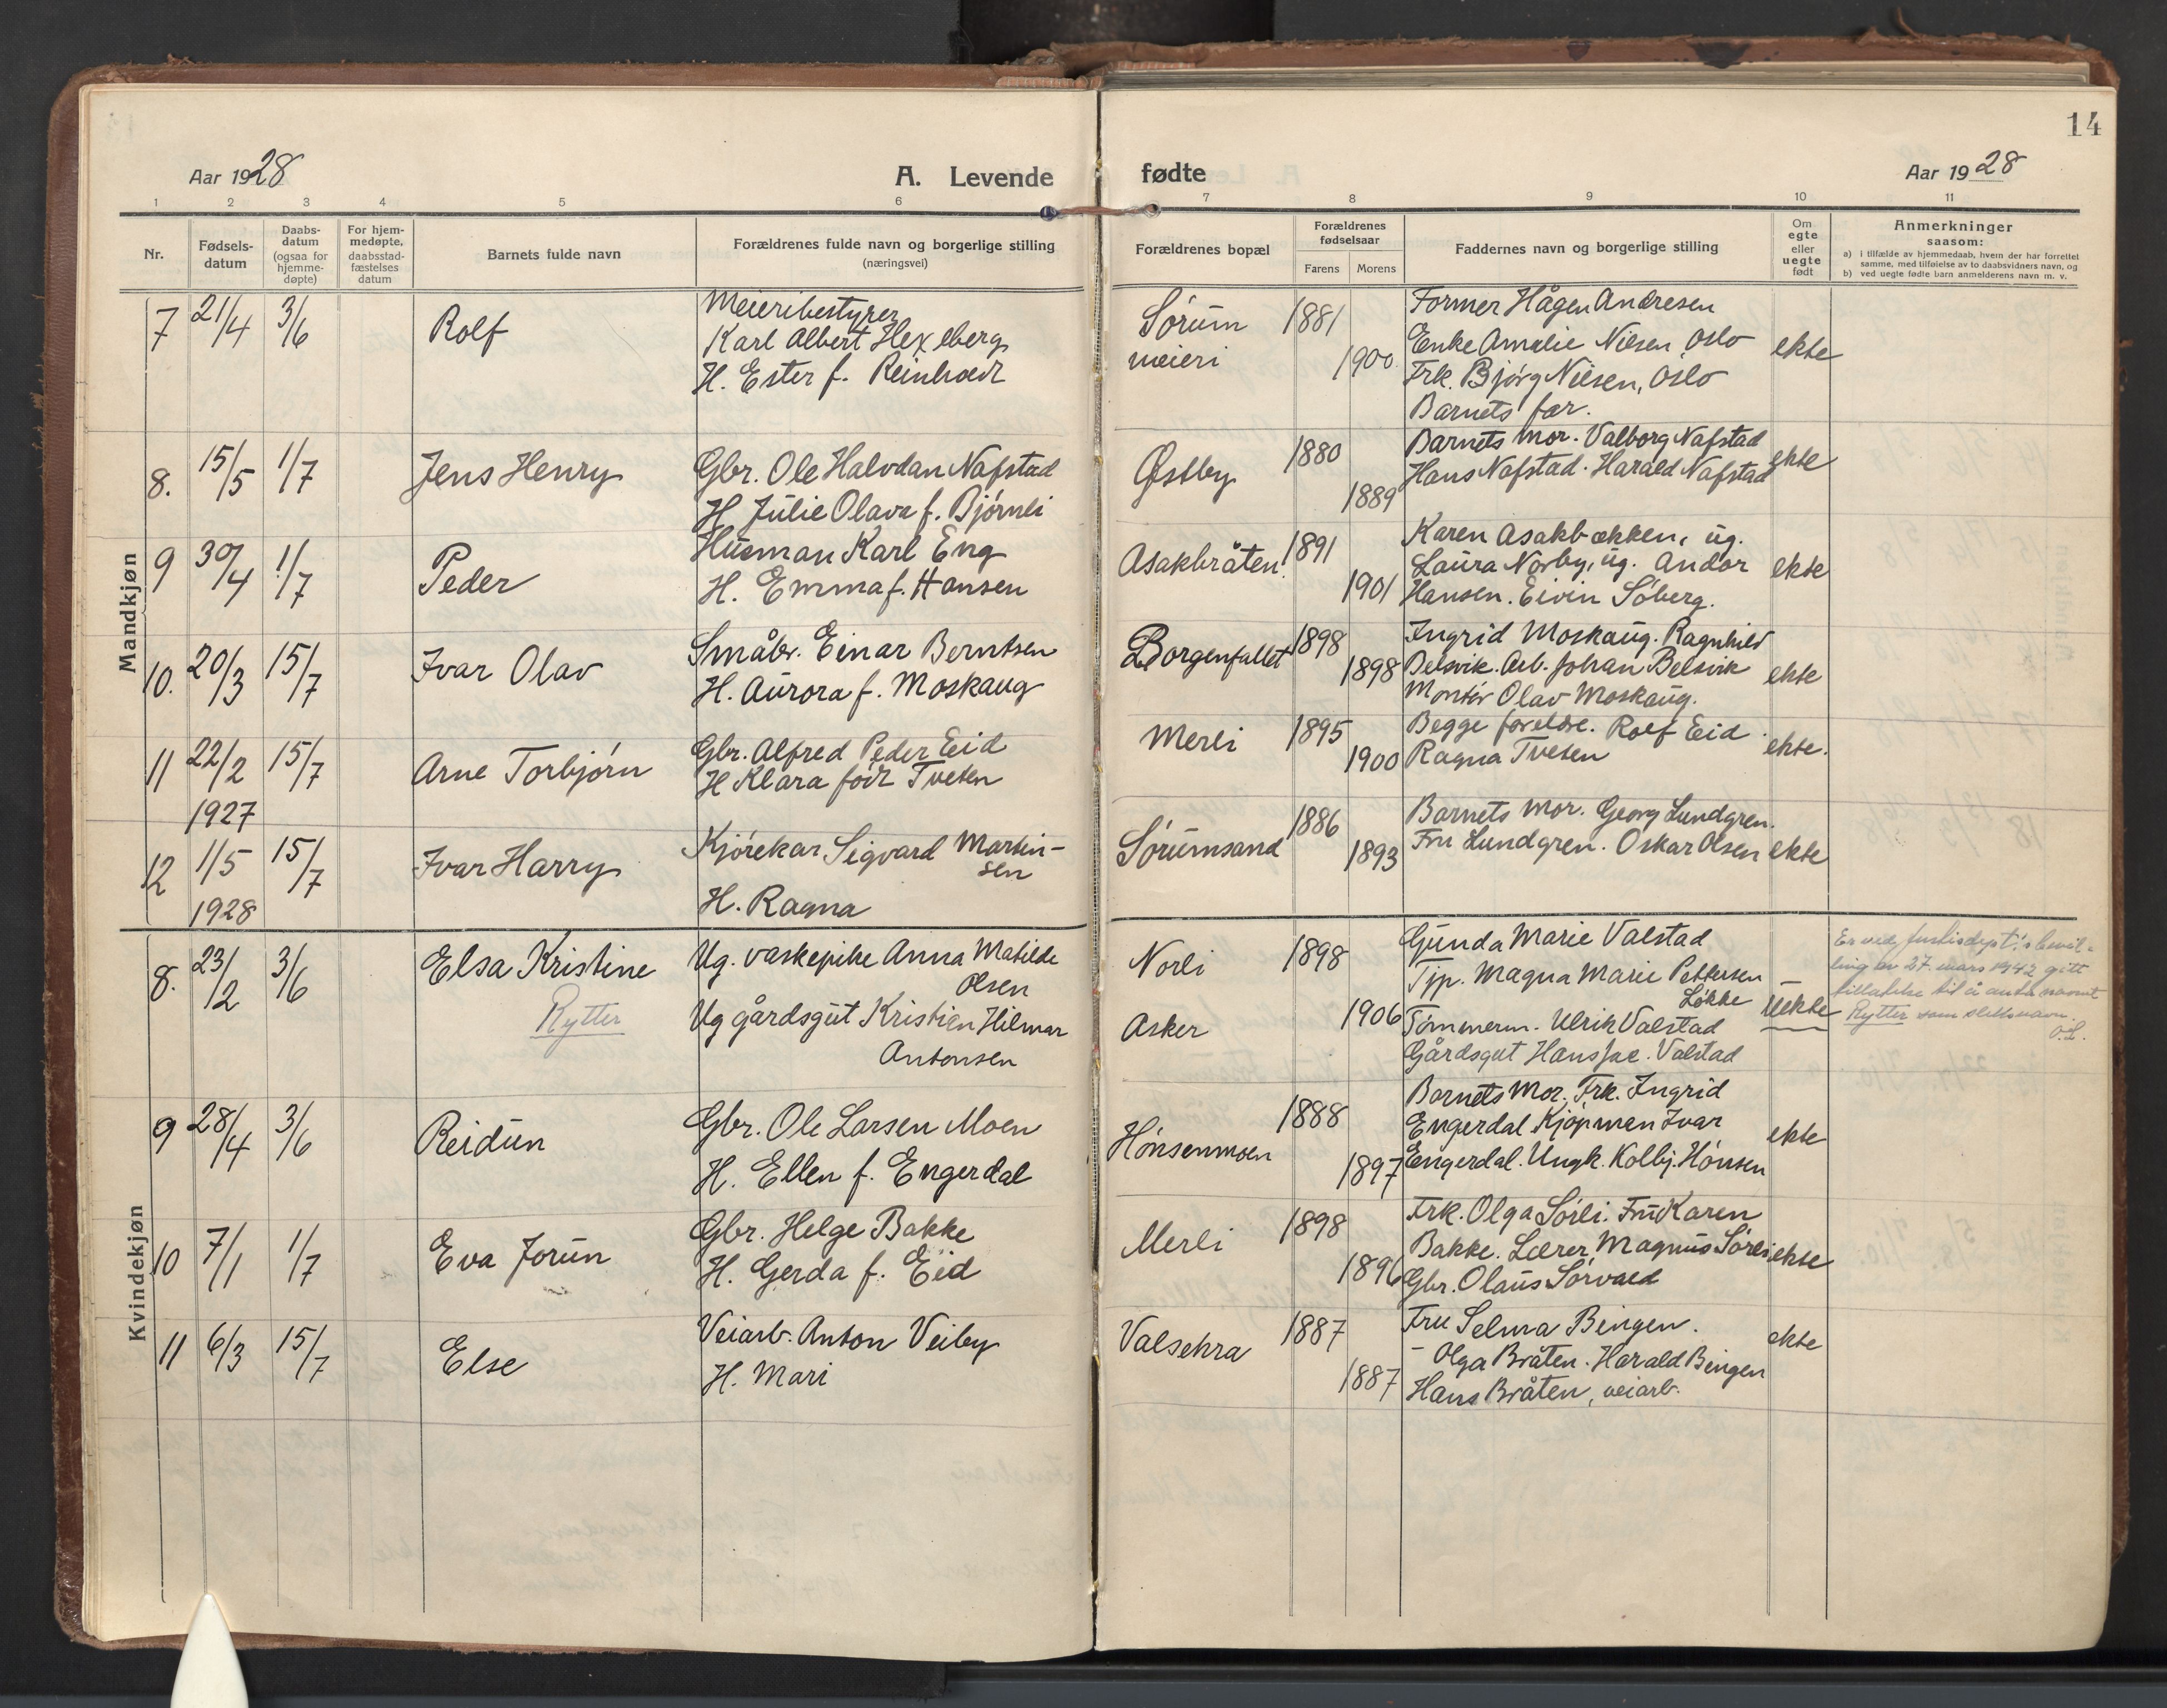 14
Aar 1928
A. Levende fødte
Aar 1928
1 2 3 4 5 6 7 8 9 10 11
Nr.
Fødsels-
datum
Daabs-
datum
(ogsaa for
hjemme-
døpte)
For hjem-
medøpte,
daabsstad-
fæstelses
datum
Barnets fulde navn
Forældrenes fulde navn og borgerlige stilling
(næringsvei)
Forældrenes bopæl
Forældrenes
fødselsaar
Farens Morens
Faddernes navn og borgerlige stilling
Om
egte
eller
uegte
født
Anmerkninger
saasom:
a) i tilfælde av hjemmedaab, hvem der har forrettet
samme, med tilføielse av to daabsvidners navn, og
b) ved uegte fødte barn anmelderens navn m. v.
Mandkjøn
7 21/4 3/6 Rolf
Meieribestyrer
Karl Albert Hexeberg
H. Ester f. Reinhardt
Sørum
meieri
1881
1900
Former Hågen Andresen
Enke Amalie Nilsen, Oslo
Frk. Bjørg Nilsen, Oslo
Barnets far.
ekte
8. 15/5 1/7 Jens Henry
Gbr. Ole Halvdan Nafstad
H. Julie Olava f. Bjørnli
Østby
1880
1889
Barnets mor. Valborg Nafstad
Hans Nafstad. Harald Nafstad
ekte
9 30/4 1/7 Peder
Husman Karl Eng
H. Emma f. Hansen
Asakbråten.
1891
1901
Karen Asakbækken, ug.
Laura Norby, ug. Andor
Hansen. Eivin Søberg.
ekte
10. 20/3 15/7 Ivar Olav
Småbr. Einar Berntsen
H. Aurora f. Moskaug
Borgenfallet
1898
1898
Ingrid Moskaug. Ragnhild
Belsvik. Arb. Johan Belsvik
Montør Olav Moskaug.
ekte
11 22/2 15/7 Arne Torbjørn
1927
Gbr. Alfred Peder Eid
H Klara født Tveten
Merli
1895
1900
Begge foreldre. Rolf Eid.
Ragna Tveten
ekte.
12 1/5 15/7 Ivar Harry
1928
Kjørekar Sigvard Martin-
sen
H. Ragna
Sørumsand
1886
1893
Barnets mor. Georg Lundgren.
Fru Lundgren. Oskar Olsen
ekte
Kvindekjøn
8. 23/2 3/6 Elsa Kristine
Rytter
Ug. vaskepike Anna Matilde
Olsen
Ug gårdsgut Kristian Hilmar
Antonsen
Norli
Asker
1898
1906
Gunda Marie Valstad
Tjp. Magna Marie Pettersen
Løkke
Tømmerm. Ulrik Valstad
Gårdsgut Hans Jac. Valstad
Uekte
Er ved justisdept.'s bevil-
ling av 27. mars 1942 gitt
tillatelse til å anta navnet
Rytter som slektsnavn.
O.L.
9 28/4 3/6 Reidun
Gbr. Ole Larsen Moen
H. Ellen f. Engerdal
Hønsenmoen
1888
1897
Barnets Mor. Frk. Ingrid
Engerdal Kjøpman Ivar
Engerdal. Ungk. Kolbj. Hønsen
ekte
10 7/1 1/7 Eva Jorun
Gbr. Helge Bakke
H. Gerda f. Eid
Merli
1898
1896
Frk. Olga Sørli. Fru Karen
Bakke. Lærer Magnus Sørli
Gbr. Olaus Sørvald
ekte
11 6/3 15/7 Else
Veiarb. Anton Veiby
H. Mari
Valsetra
1887
1887
Fru Selma Bingen.
- Olga Bråten. Harald Bingen
Hans Bråten, veiarb.
ekte